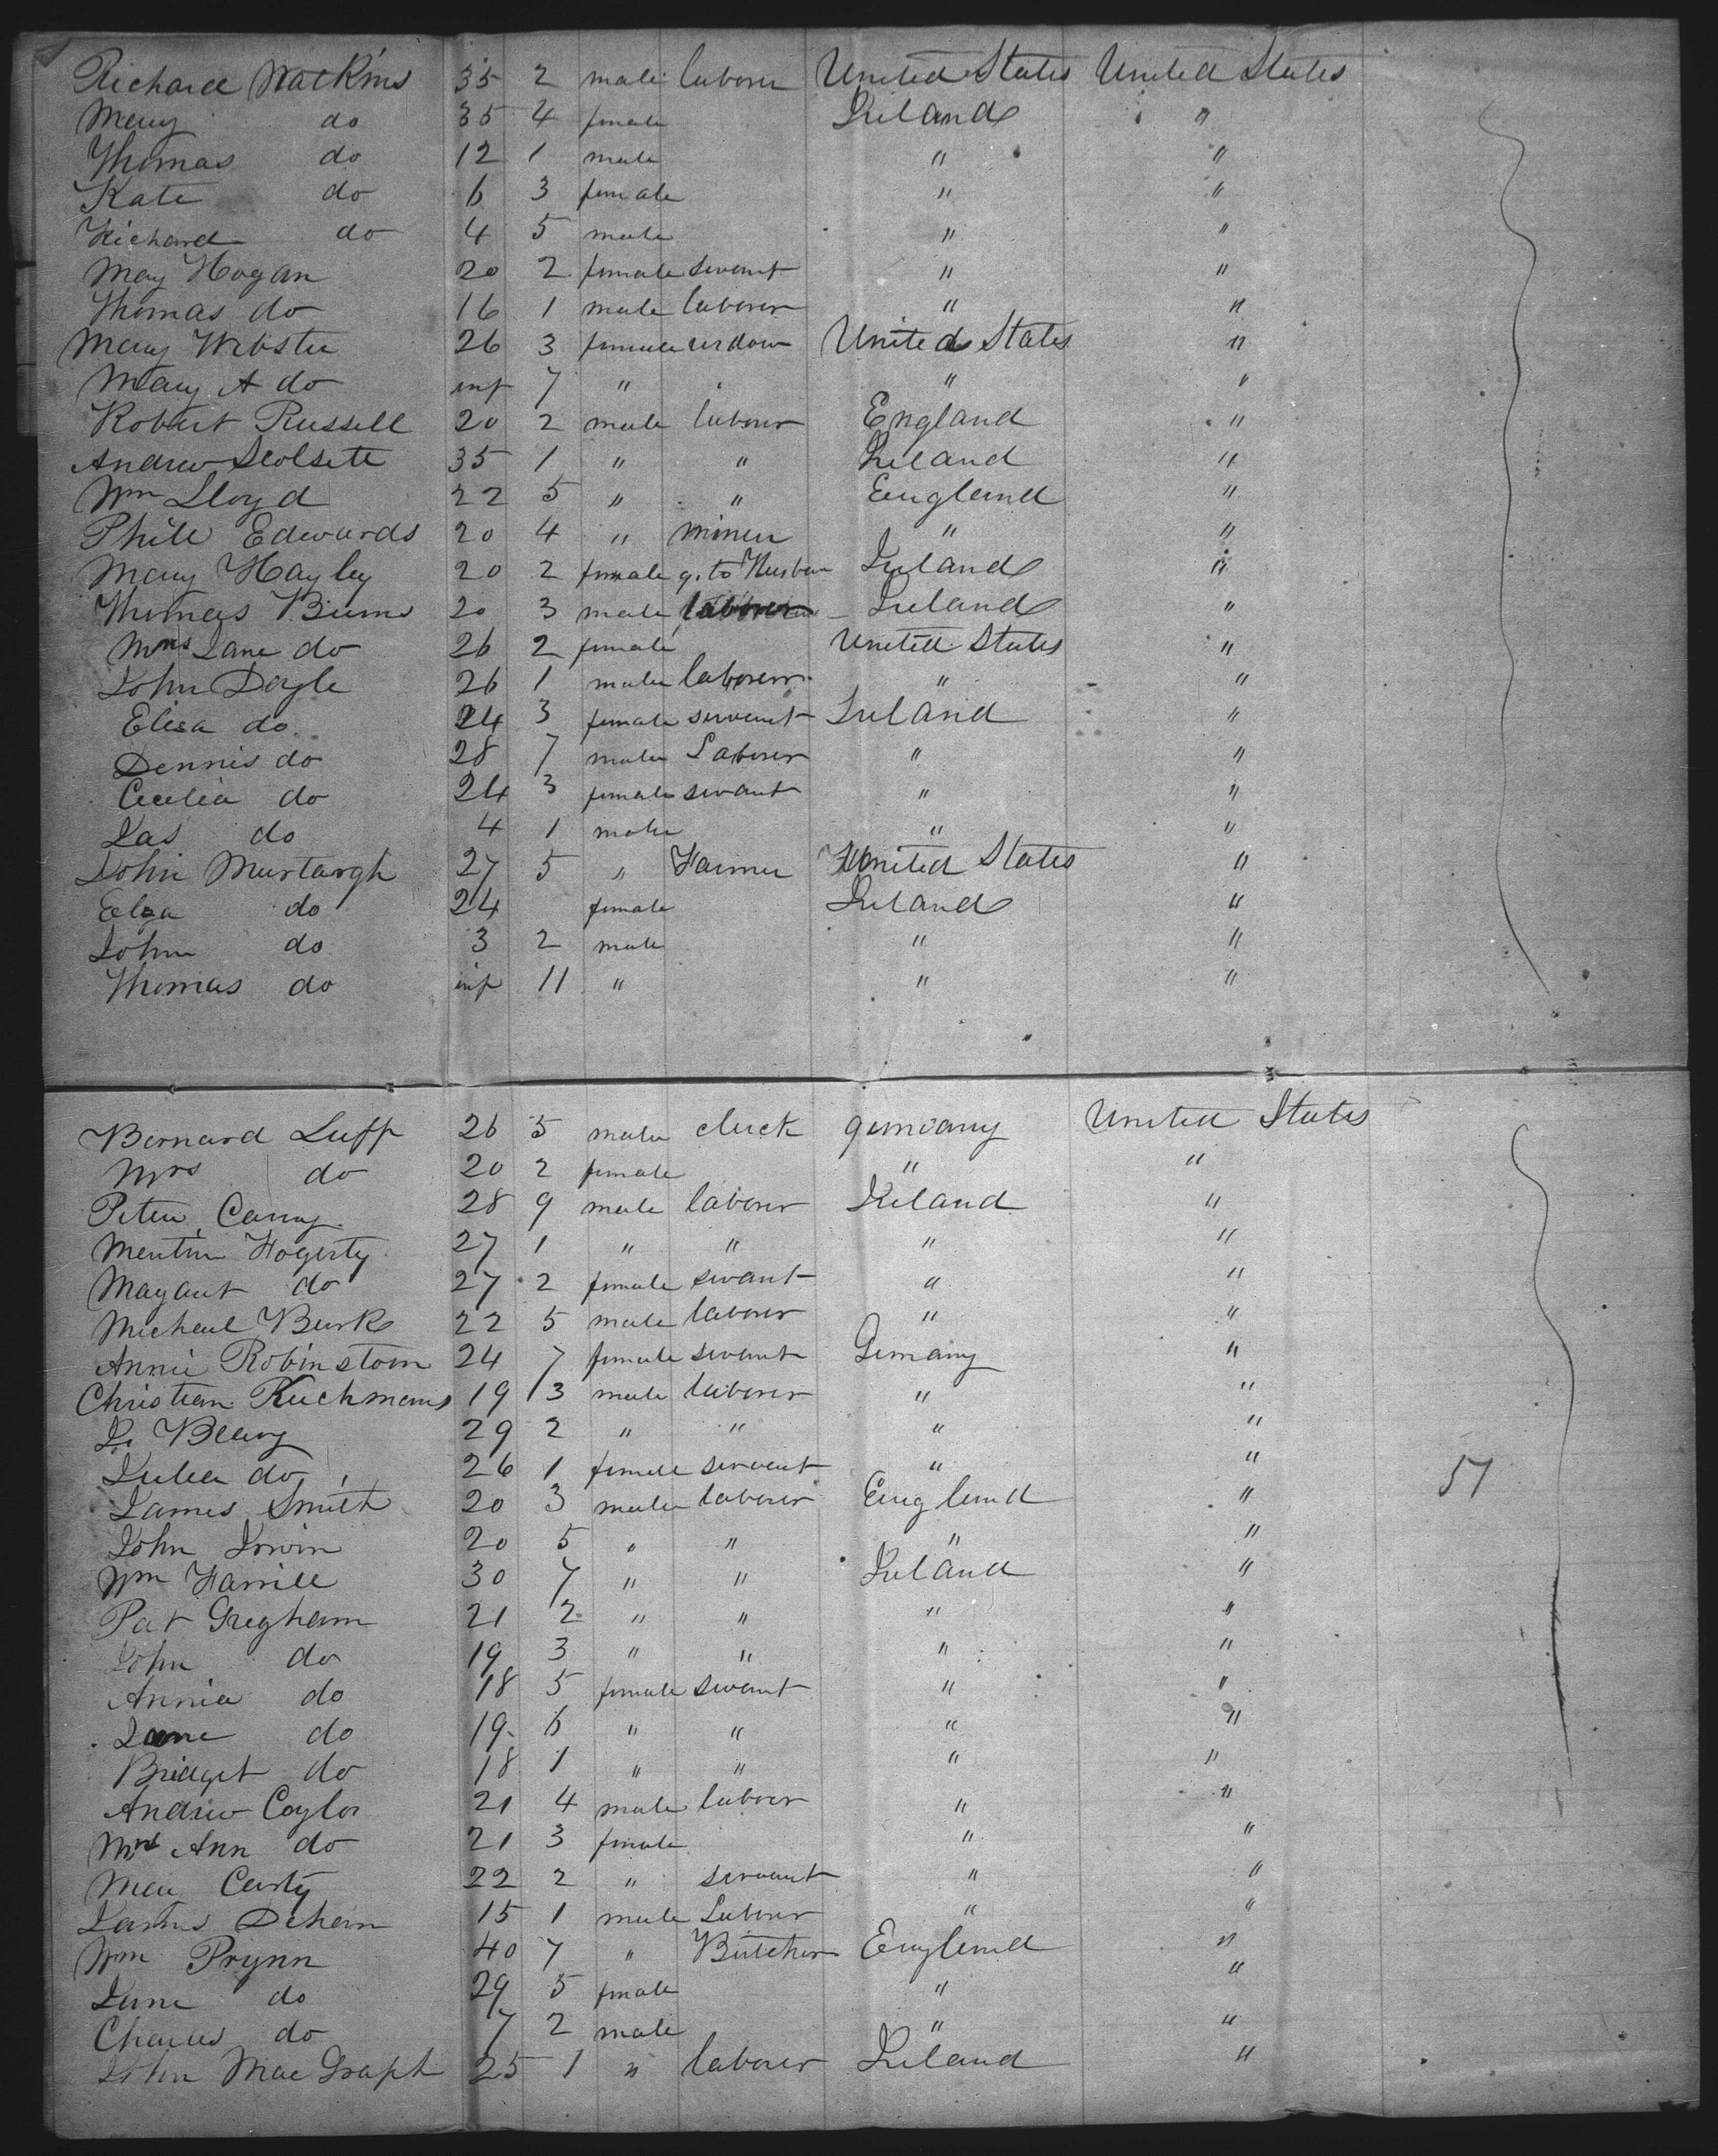 Richard Watkins 35 2 male laborer United States United States
Mary do 35 4 female Ireland "
Thomas do 12 1 male " "
Kate do 6 3 female " "
Richard do 4 5 male " "
May Hogan 20 2 female servant " "
Thomas do 16 1 male laborer " "
Mary Webster 26 3 female widow United States "
Mary A do inf 7 " " " "
Robert Russell 20 2 male laborer England "
Andrew 35 1 " " Ireland "
Wm Lloyd 22 5 " " England "
Phill Edwards 20 4 " miner " "
Mary Hayley 20 2 female g. to Husban Ireland "
Thomas Burns 20 3 male laborer Ireland "
Mrs Jane do 26 2 female United States "
John Doyle 26 1 male laborer " "
Elisa do 24 3 female servant Ireland "
Dennis do 28 7 male Laborer " "
Cecelia do 24 3 female servant " "
Jas do 4 1 male " "
John Murtaugh 27 5 " Farmer United States "
Elza do 24 female Ireland "
John do 3 2 male " "
Thomas do inf 11 " " "
Bernard Luff 26 5 male clerk germany United States
Mrs do 20 2 female " "
Peter Carry 28 9 male laborer Ireland "
Martin Fogerty 27 1 " " " "
Magaret do 27 2 female servant " "
Micheal Burk 22 5 male laborer " "
Annie Robinstorn 24 7 female servant Germany "
Christian 19 3 male laborer " "
29 2 " " " "
Julia do 26 1 female servant " "
James Smith 20 3 male laborer England "
57
John Irwin 20 5 " " " "
Wm Farrill 30 7 " " Ireland "
Pat Gregham 21 2 " " " "
John do 19 3 " " " "
Annia do 18 5 female servant " "
Jane do 19 6 " " " "
Bridget do 18 1 " " " "
Andrew Coylor 21 4 male laborer " "
Mrs Ann do 21 3 female " "
Mary Carty 22 2 " servant " "
James Dehan 15 1 male Laborer " "
Wm Prynn 40 7 " Butcher England "
Jane do 29 5 female " "
Charles do 7 2 male " "
John Mac Graph 25 1 " laborer Ireland "